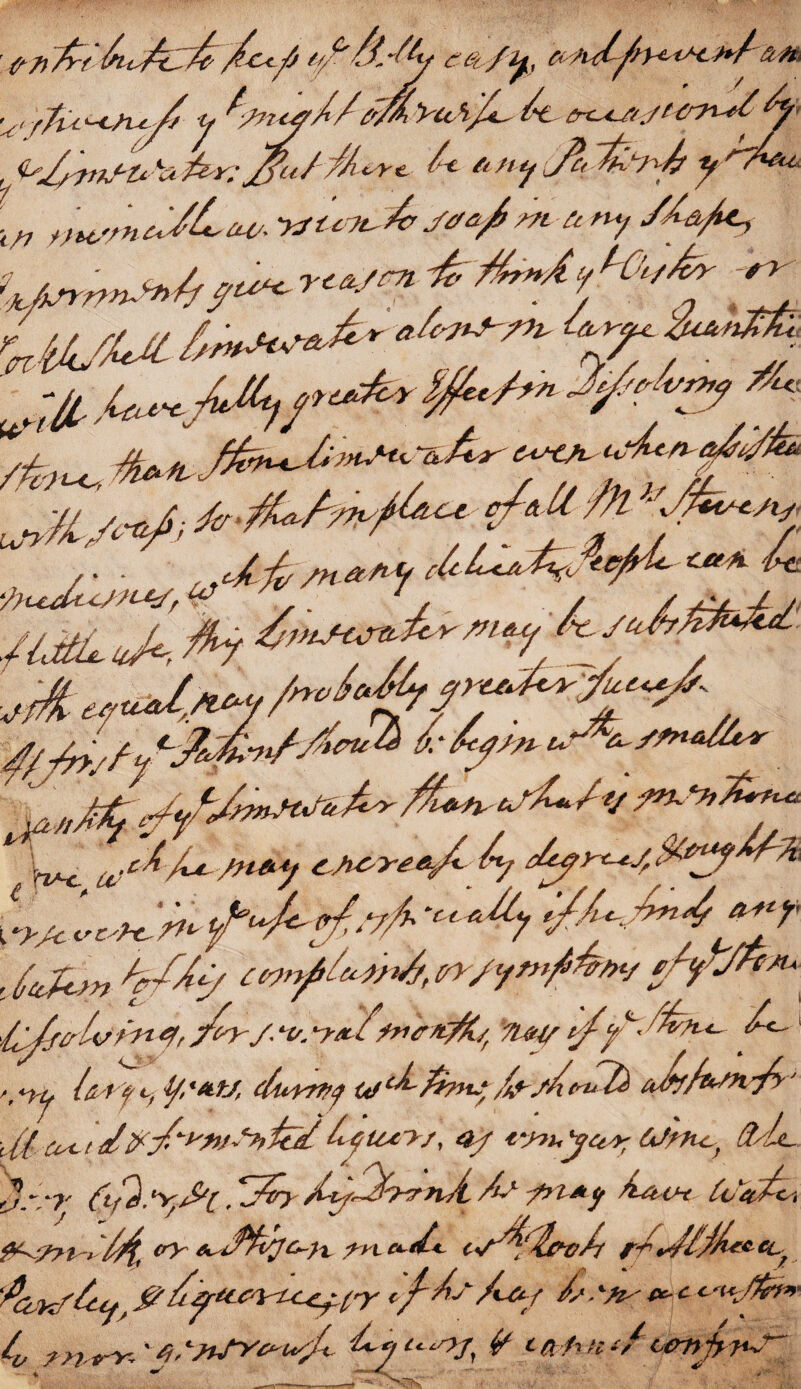 ontribute to keep yᵉ Belly easy, and prevent an
costiveness yᵗ might otherwise be occasion'd by
yᵉ Limewater: But there be any Patients yᵗ hav
an invincible aversion to soap in any Shape,
Experiments give reason to think yᵗ Oister or
Cockleshell limewater alone in large Quantitie
will have fully greater Effect in Dissolving the
stone, than Stone limewater even when assisted
with soap; so that in place of all Mʳˢ Stevens
medicines, wᶜʰ to many delicate People can be
of little use, this Limewater may be substituted
with equal, nay probably greater Success.
At first yᵉ Patient should be begin wᵗʰ a smaller
quantity of yᵉ Limewater than what is mentiond
ove, wᶜʰ he may encrease by degrees, & ought to
ersevere in yᵉ use of, especially if he finds any
abatemᵗ of his complaints, or symptoms of yᵉ Stone
dissolving, for several months, nay if yᵉ Stone be
very large, years, during wᶜʰ time, he should abstain fr
all acid & fermented liquors, as vinegar, wine, Ale
Beer, Cyder, &c. For his Drink he may have Water
& milk, or a Ptisan made wᵗʰ Roots of Althæa,
Parsley, & liquorice; or if he has been accustom
to more generouse liquors, & cannot confine